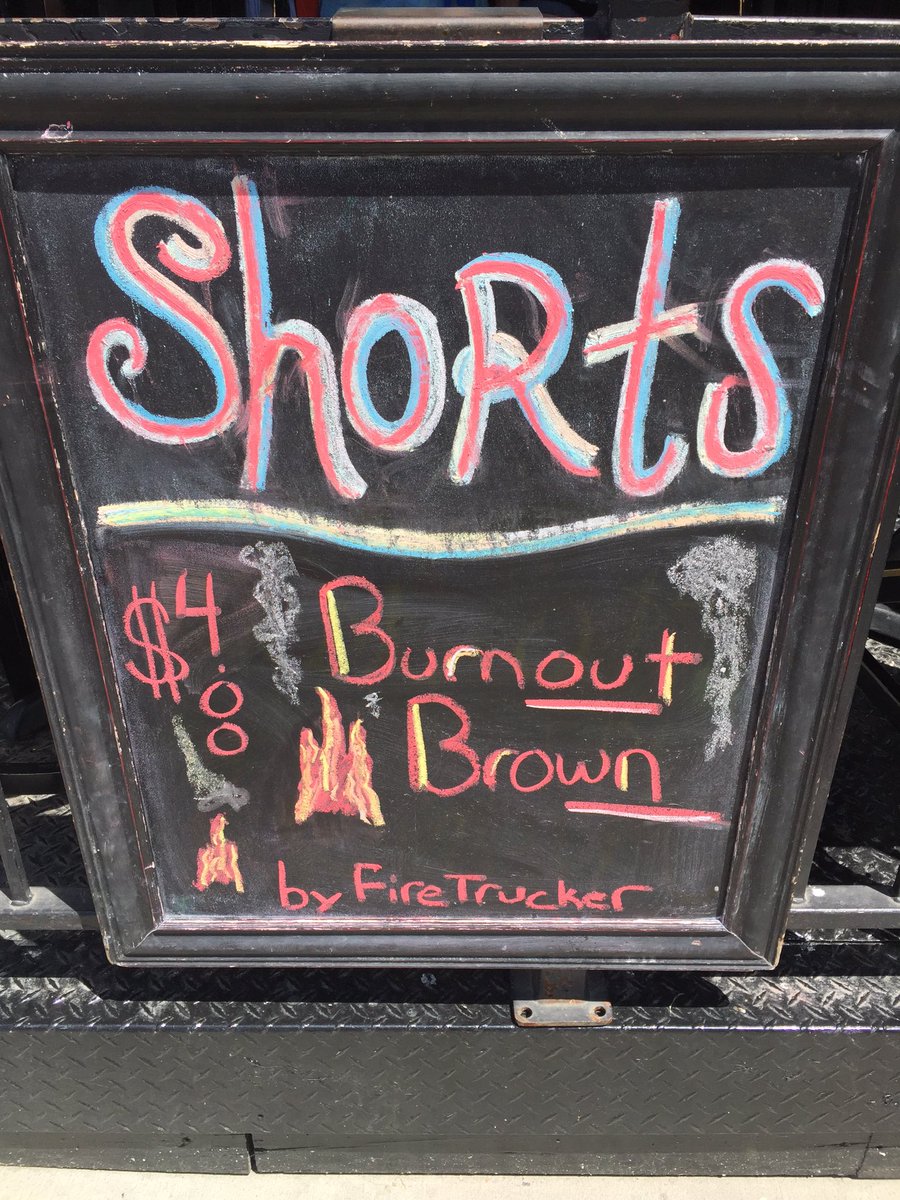 Shorts
$4.00
Burnout
Brown
by FireTrucker